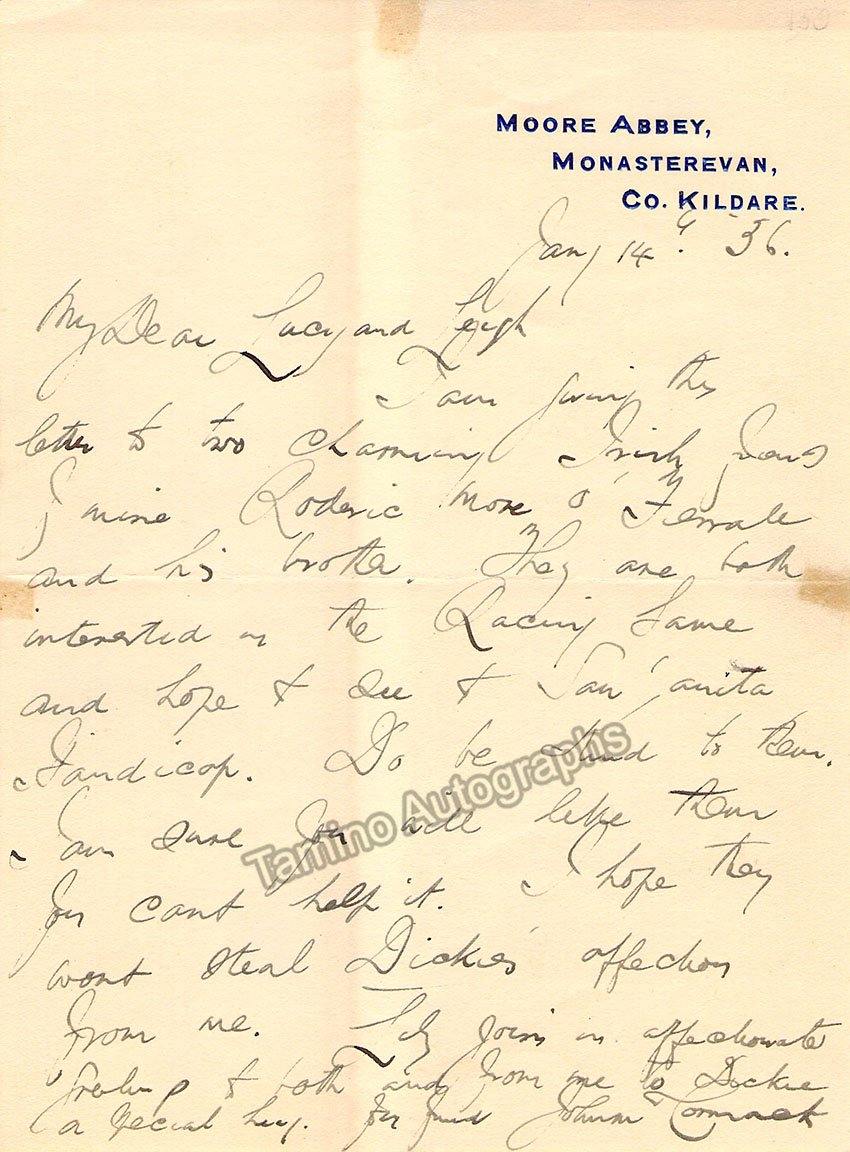 MOORE ABBEY,
MONASTEREVAN,
CO. KILDARE.
Jany 14th '36.
My Dear Lucy and Leigh
I am giving this
letter to two charming Irish friends
of mine Roderic More O'Ferrall
and his brother. They are both
interested in the Racing Game
and hope to see to San'anita
Handicap. Do be kind to them.
I am sure you will like them
you cant help it. I hope they
wont steal Dickie's affection
from me. Lily joins in affectionate
to both and from me to Dickie
a special hug. Yr friend John McCormack
Tamino Autographs